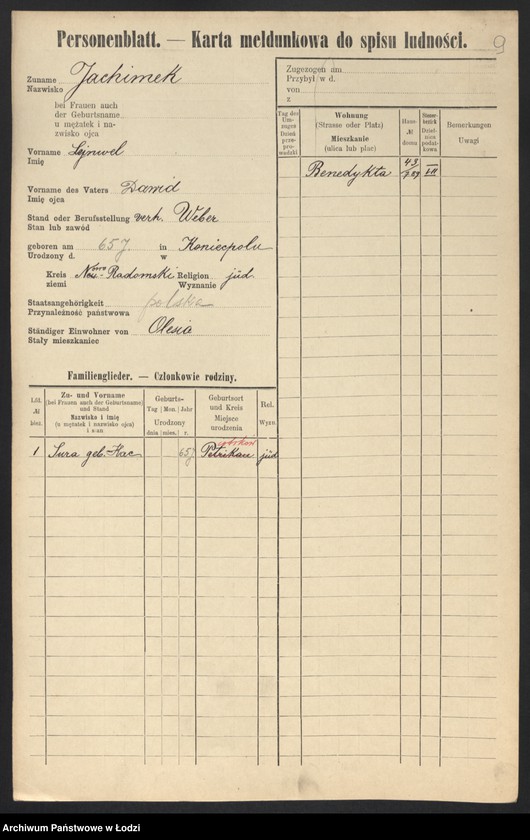 Personenblatt. — Karta meldunkowa do spisu ludności.
9
Zuname Jachimek
Nazwisko
bei Frauen auch
der Geburtsname
u mężatek i na-
zwisko ojca
Vorname Lejnwel
Imię
Vorname des Vaters Dawid
Imię ojca
Stand oder Berufsstellung verh. Weber
Stan lub zawód
geboren am 65 J. in Koniecpolu
Urodzony d. w
Kreis Nowo-Radomski Religion jüd.
ziemi Wyznanie
Staatsangehörigkeit polska
Przynależność państwowa
Ständiger Einwohner von
Stały mieszkaniec
Zugezogen am
Przybył w d.
von
z
Tag des Um-zuges Dzień prze-prowadzki
Wohnung
(Strasse oder Platz)
Mieszkanie
(ulica lub plac)
Haus-
№
domu
Steuer-
bezirk
Dziel-
nica
podat-
kowa
Bemerkungen
Uwagi
Benedykta 43/789 III
Familienglieder. — Członkowie rodziny.
Lfd.
№
bież.
Zu- und Vorname
(bei Frauen auch der Geburtsname)
und Stand
Nazwisko i imię
(u mężatek i nazwisko ojca)
i stan
Geburts-
Tag Mon. Jahr
Urodzony
dnia mies. r.
Geburtsort
und Kreis
Miejsce
urodzenia
Rel.
Wyzn
1 Sura geb. Kac 65 J. Petrikau jüd
Archiwum Państwowe w Łodzi